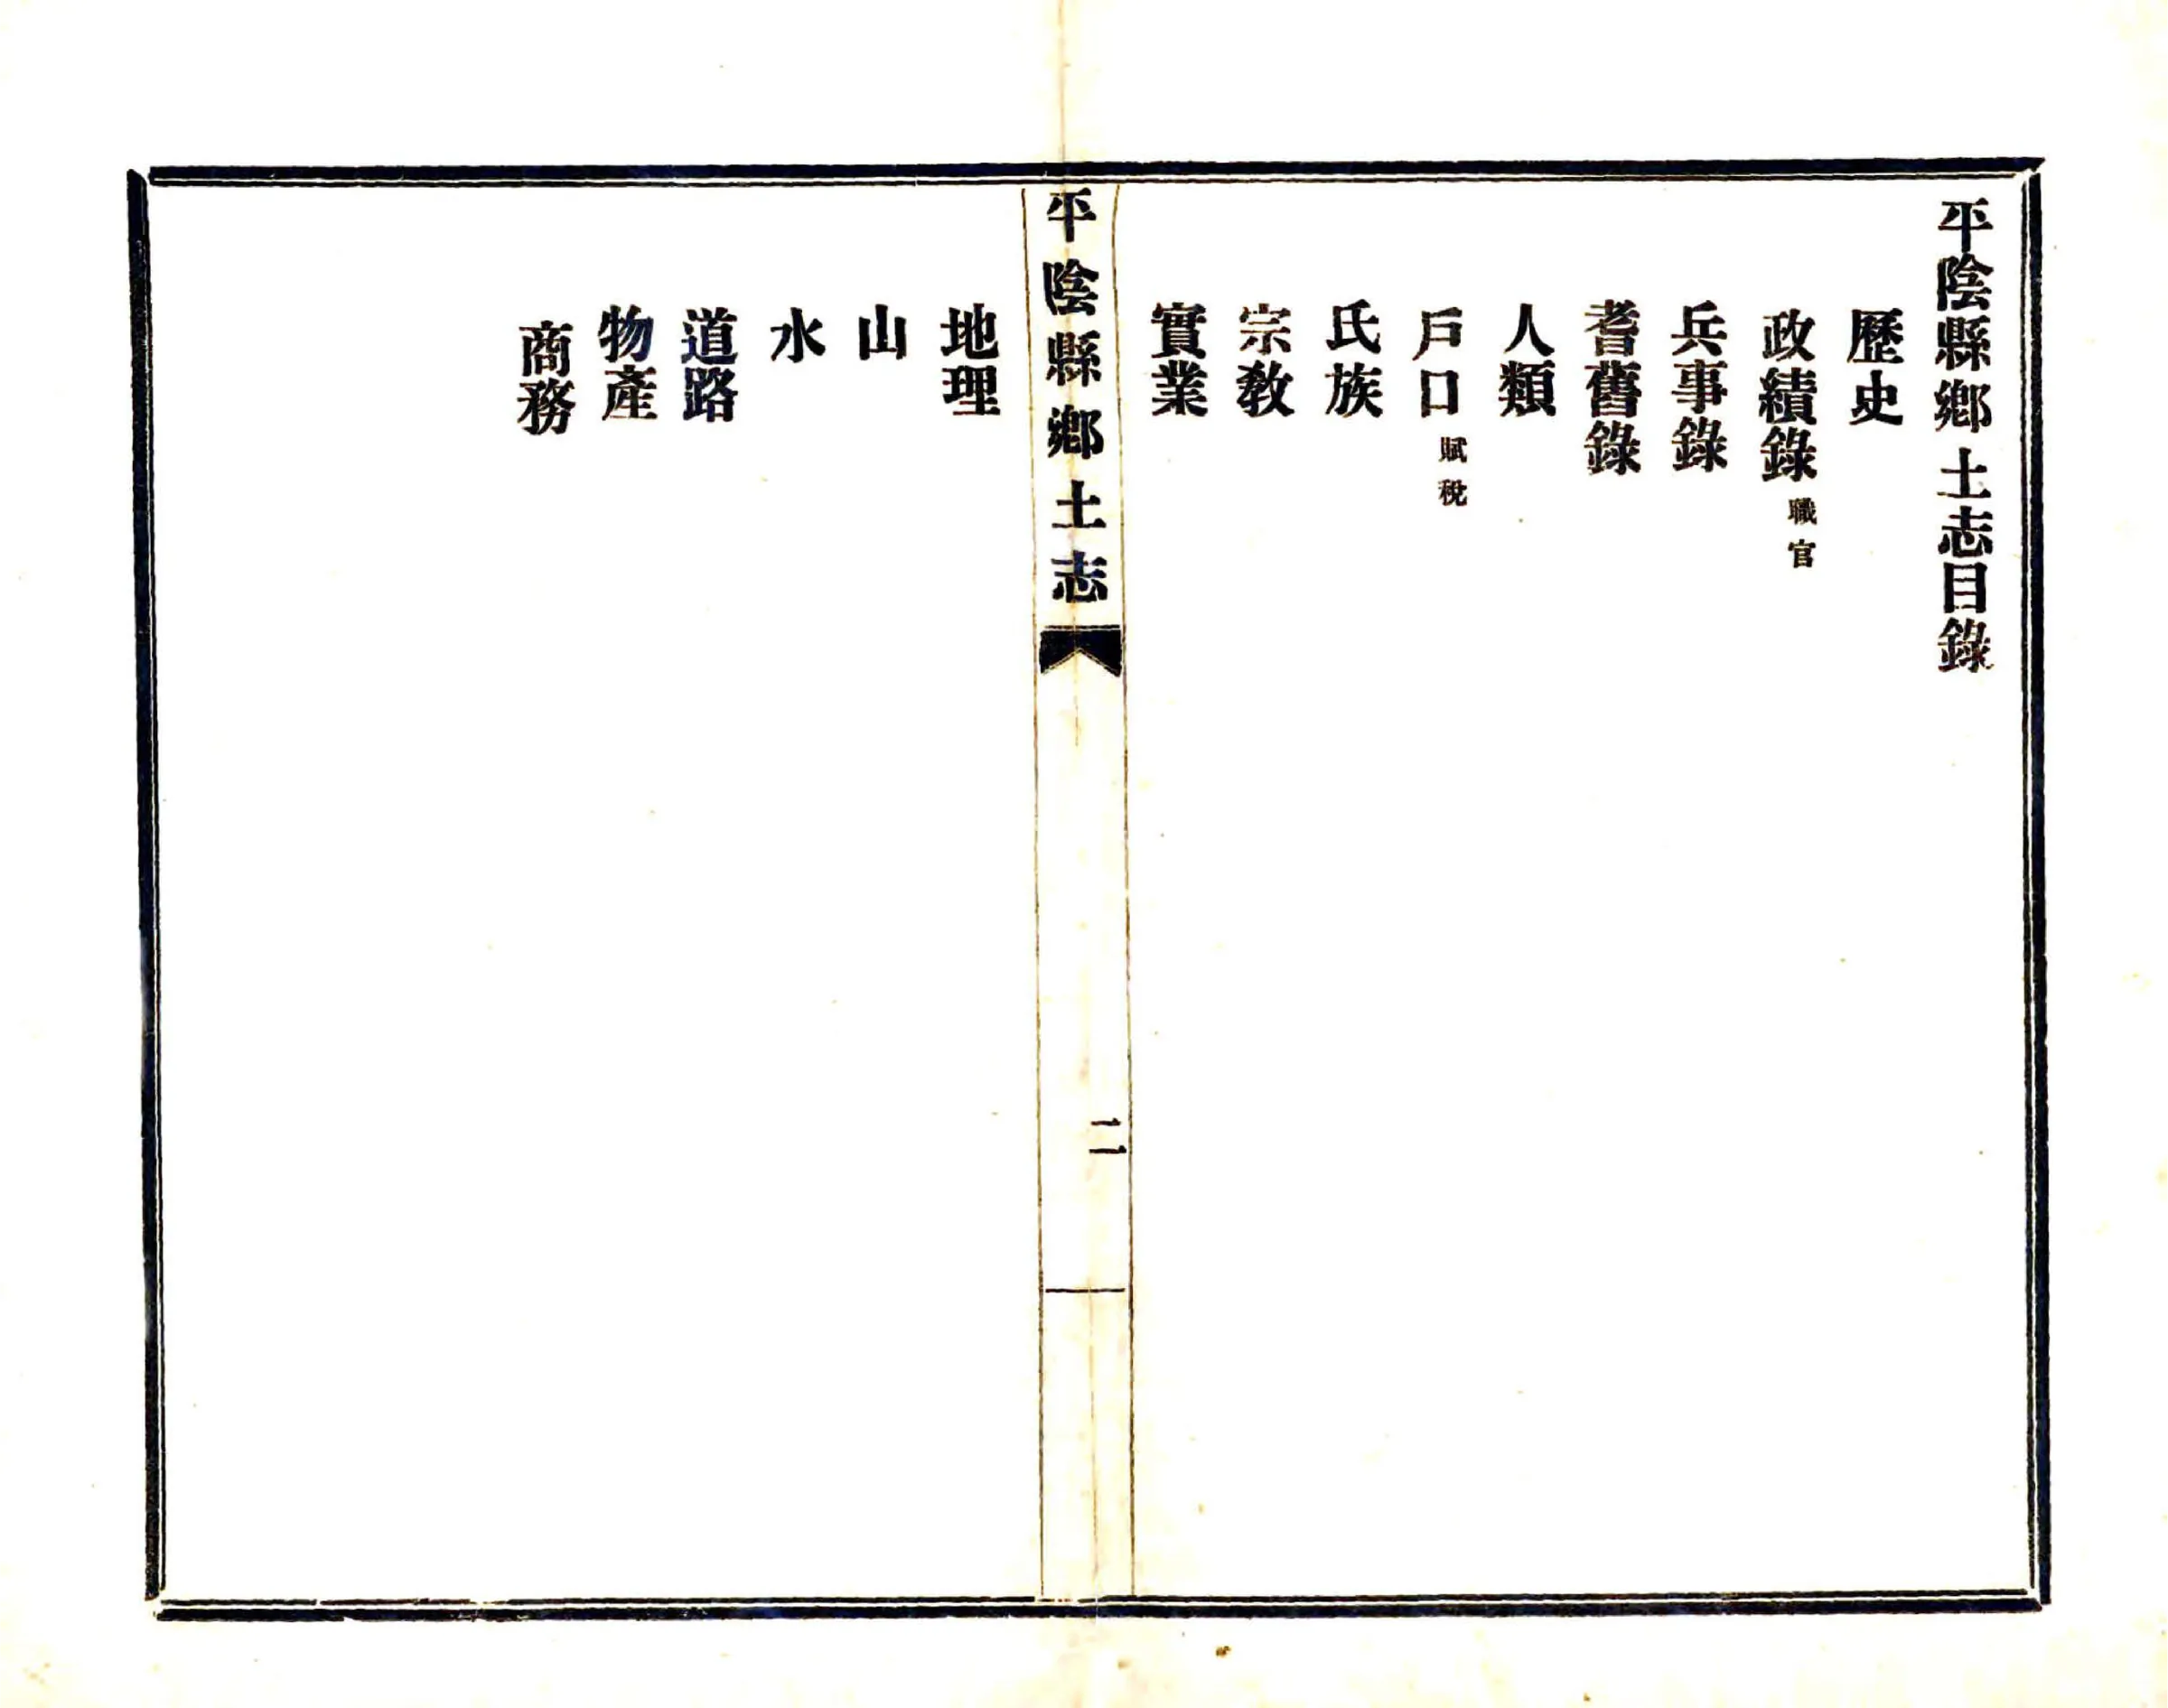 平陰縣鄉土志目錄
歷史
政績錄 職官
兵事錄
耆舊錄
人類
戶口 賦稅
氏族
宗教
實業
平陰縣鄉土志
二
地理
山
水
道路
物產
商務